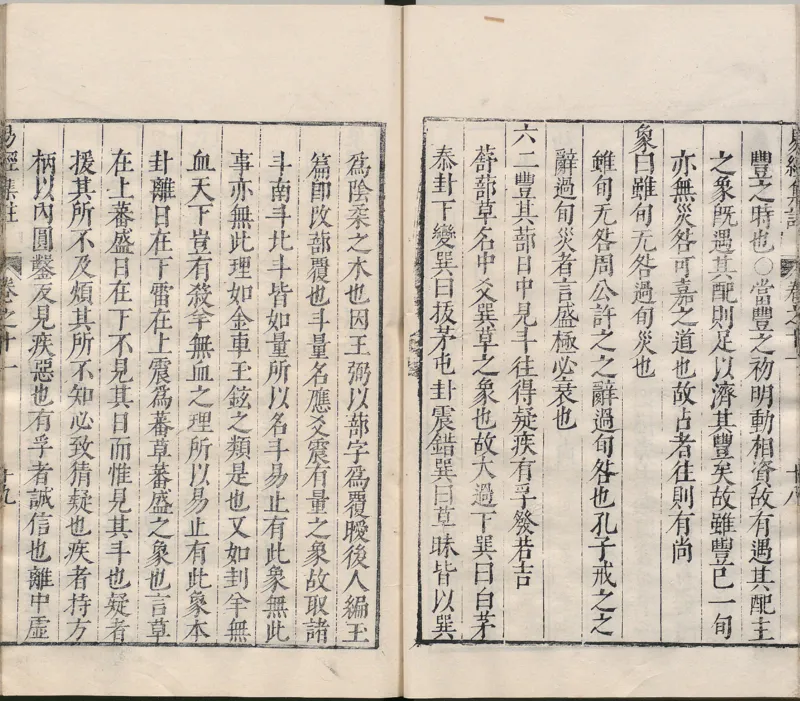 豐之時也○當豐之初明動相資故有遇其配主
之象旣遇其配則足以濟其豐矣故雖豐已一旬
亦無災咎可嘉之道也故占者往則有尚
象曰雖旬无咎過旬災也
雖旬无咎周公許之之辭過旬咎也孔子戒之之
辭過旬災者言盛極必衰也
六二豐其蔀日中見斗往得疑疾有孚發若吉
蔀蔀草名中爻巽草之象也故大過下巽曰白茅
泰卦下變巽曰拔茅屯卦震錯巽曰草昧皆以巽
爲陰柔之木也因王弼以蔀字爲覆曖後人編玉
篇卽改蔀覆也斗量名應爻震有量之象故取諸
斗南斗北斗皆如量所以名斗易止有此象無此
事亦無此理如金車玉鉉之類是也又如刲羊無
血天下豈有殺羊無血之理所以易止有此象本
卦離日在下雷在上震爲蕃草蕃盛之象也言草
在上蕃盛日在下不見其日而惟見其斗也疑者
援其所不及煩其所不知必致猜疑也疾者持方
柄以內圓鑿反見疾惡也有孚者誠信也離中虛
易經集註
卷之十一
十九